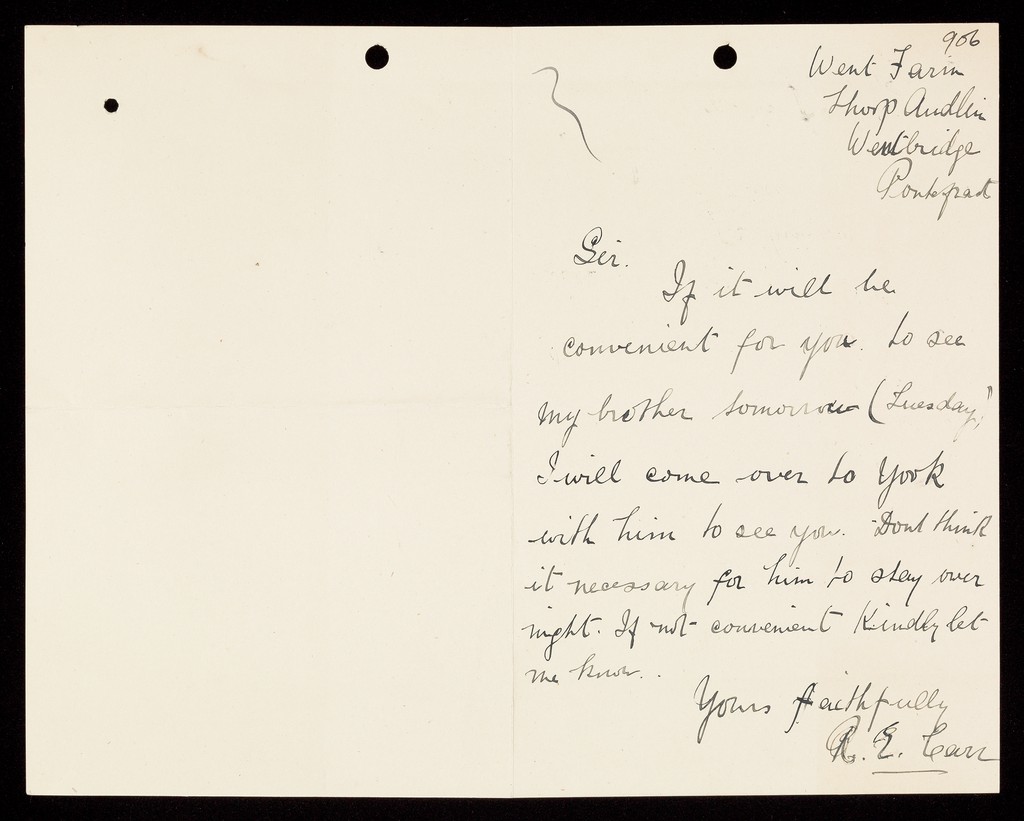 906
Went Farm
Thorp Audlin
Wentbridge
Pontefract
Sir.
If it will be
convenient for you. to see
my brother tomorrow (Tuesday)
I will come over to York
with him to see you. Dont think
it necessary for him to stay over
night. If not convenient Kindly let
me know..
Yours faithfully
R. E. Carr